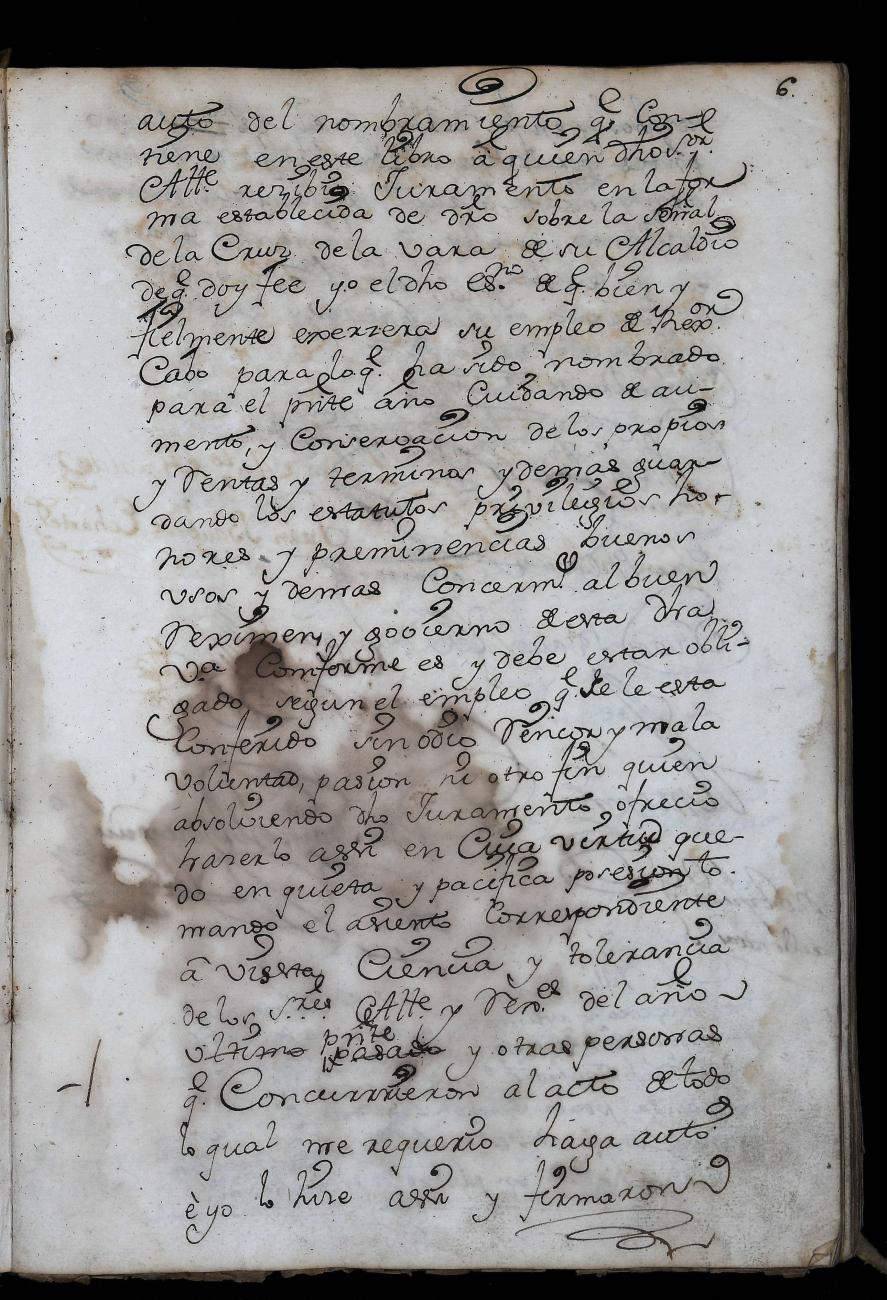 6.
auto del nombramiento q.e Con-
tiene en este libro â quien dho S.or
Alt.e rezibio Juramento en la for
ma establecida de dro sobre la señal
de la Cruz de la vara de su Alcaldia
de q.e doy fee yo el dho es.no de q.e bien y
fielmente exerzera su empleo de Rex.or
Cabo para lo q.e ha sido nombrado
para el prñte año Cuidando de au-
mento, y Conservacion de los propios
y Rentas y terminos y demas guar-
dando los estatutos privilegios ho-
nores y preminencias buenos
usos y demas Concerm.e al buen
Reximen, y govierno de esta dha
v.a Conforme es y debe estar obli-
gado segun el empleo q.e se le esta
Conferido sin odio Rencor y mala
voluntad, pasion ni otro fin quien
absolviendo dho Juramento ofrecio
hazerlo assi en Cuia virtud que-
do en quieta y pacifica posesion to-
mando el asiento Correspondiente
â vista, Ciencia y tolerancia
de los S.res Alt.e y Rex.es del año
ultimo prñte pasado y otras personas
q.e Concurrieron al acto de todo
lo qual me requerio haga auto
è yo lo hize assi y firmaron